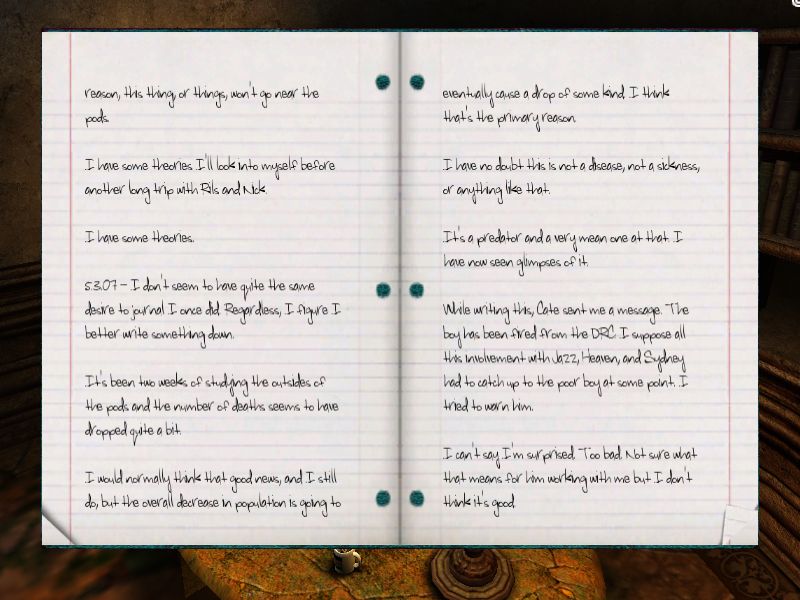 reason, this thing, or things, won't go near the
pods.
I have some theories I'll look into myself before
another long trip with Rils and Nick.
I have some theories.
5.3.07 - I don't seem to have quite the same
desire to journal I once did. Regardless, I figure I
better write something down.
It's been two weeks of studying the outsides of
the pods and the number of deaths seems to have
dropped quite a bit.
I would normally think that good news, and I still
do, but the overall decrease in population is going to
eventually cause a drop of some kind. I think
that's the primary reason.
I have no doubt this is not a disease, not a sickness,
or anything like that.
It's a predator and a very mean one at that. I
have now seen glimpses of it.
While writing this, Cate sent me a message. The
boy has been fired from the DRC. I suppose all
this involvement with Jazz, Heaven, and Sydney
had to catch up to the poor boy at some point. I
tried to warn him.
I can't say I'm surprised. Too bad. Not sure what
that means for him working with me but I don't
think it's good.